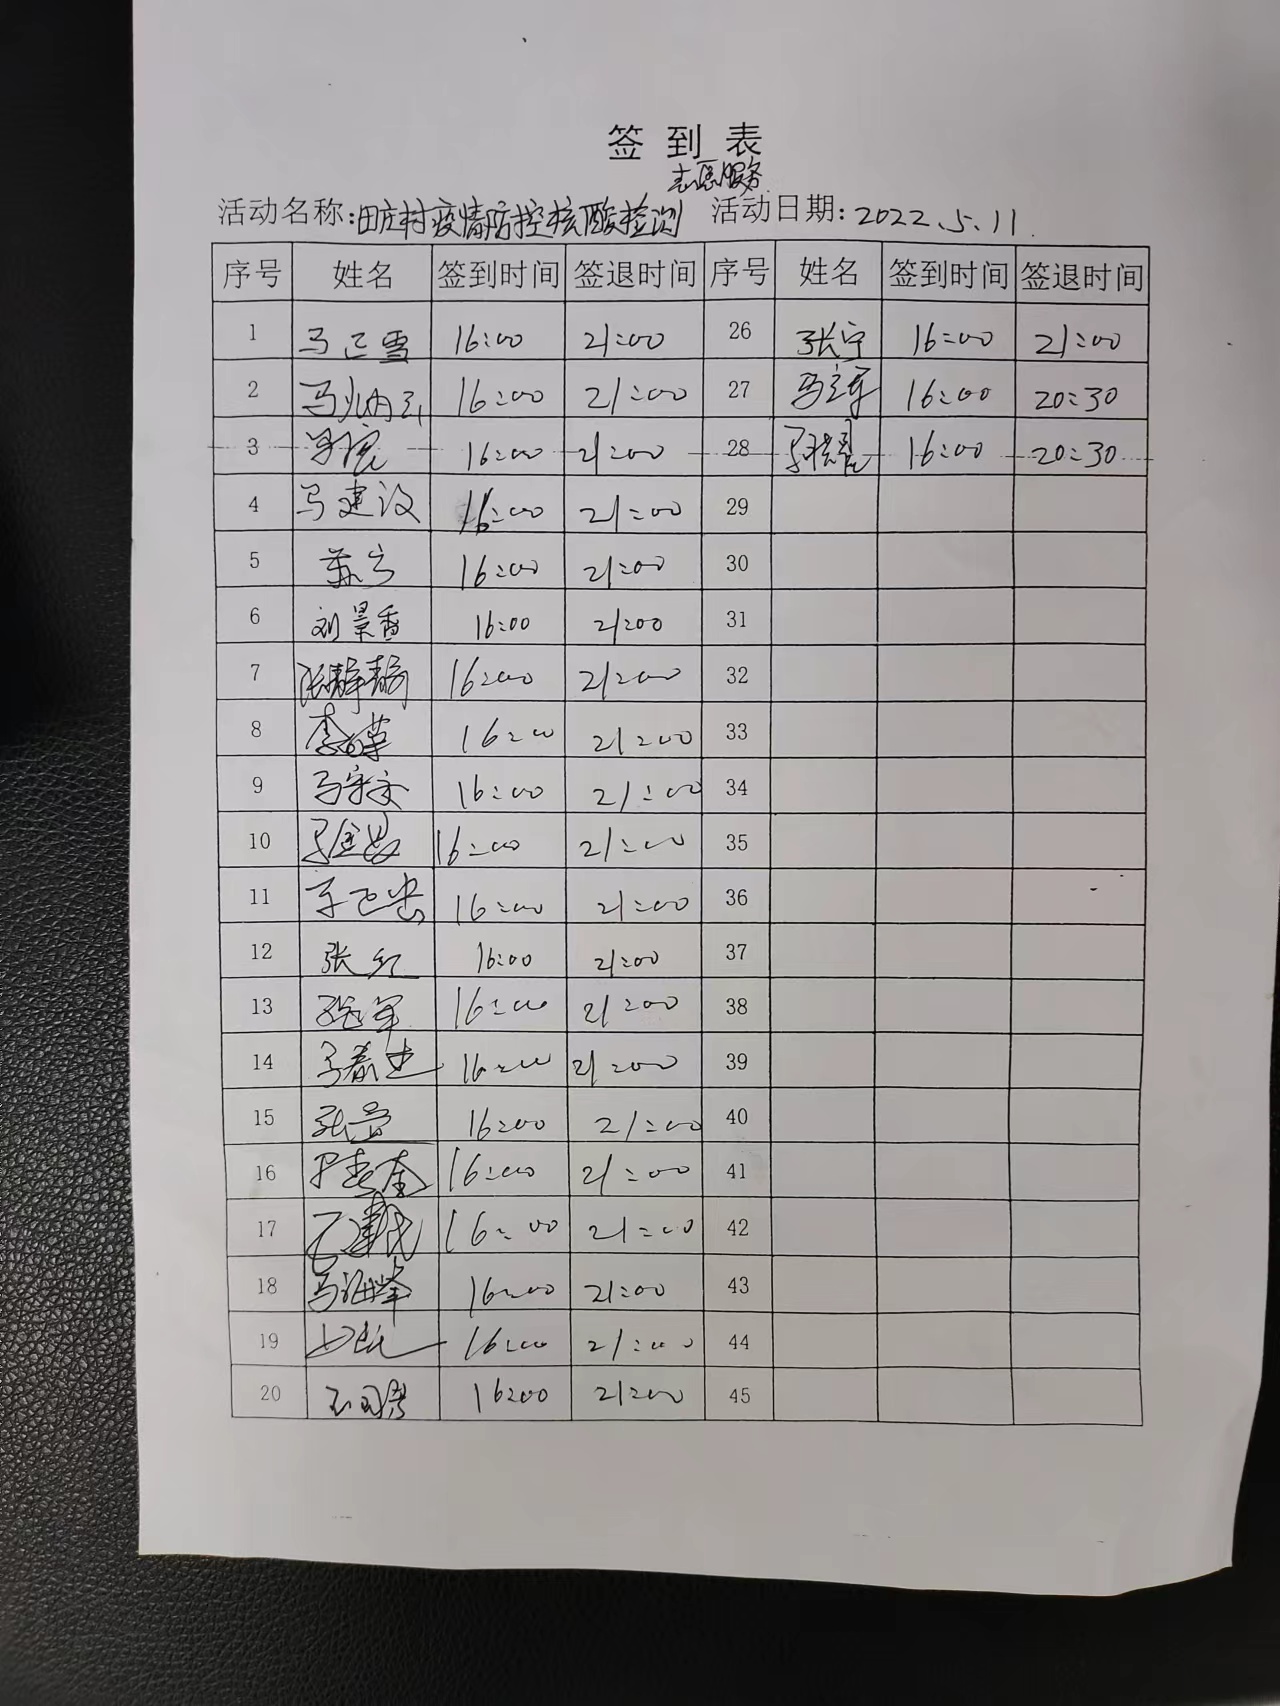 签到表
志愿服务
活动名称:田庄村疫情防控核酸检测 活动日期:2022.5.11
序号 姓名 签到时间 签退时间 序号 姓名 签到时间 签退时间
1 马正雪 16:00 21:00 26 张宁 16:00 21:00
2 16:00 21:00 27 16:00 20:30
3 16:00 21:00 28 16:00 20:30
4 马建设 16:00 21:00 29
5 16:00 21:00 30
6 刘景香 16:00 21:00 31
7 张静静 16:00 21:00 32
8 16:00 21:00 33
9 16:00 21:00 34
10 16:00 21:00 35
11 16:00 21:00 36
12 张红 16:00 21:00 37
13 16:00 21:00 38
14 16:00 21:00 39
15 16:00 21:00 40
16 16:00 21:00 41
17 16:00 21:00 42
18 马海峰 16:00 21:00 43
19 16:00 21:00 44
20 16:00 21:00 45